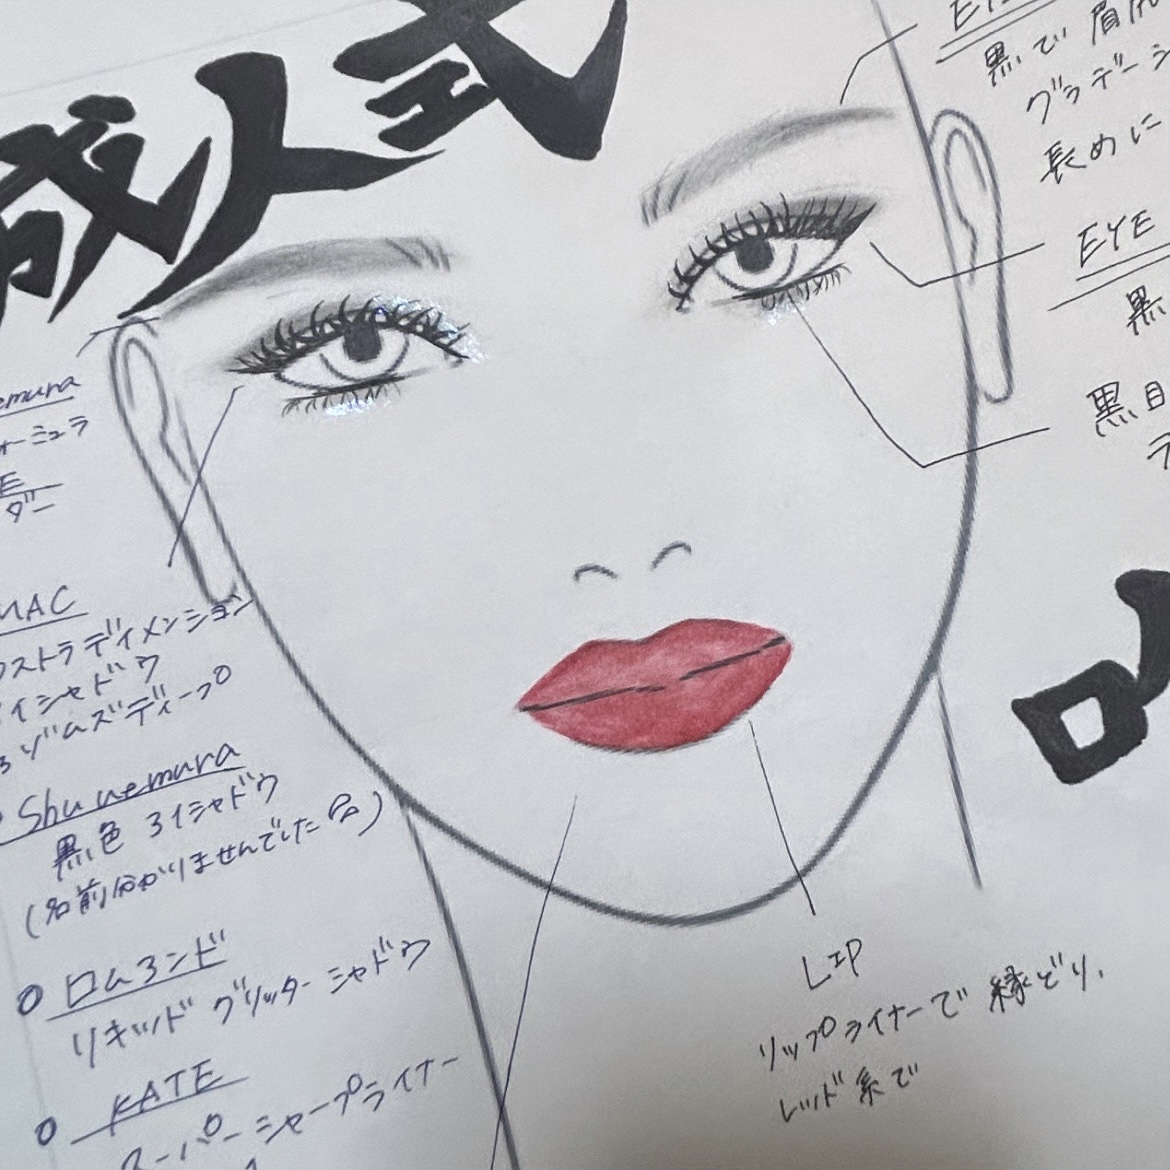 成人式
黒で
グラデーシ
長めに
EYE
黒
黒目
emura
ォーミュラ
ダー
MAC
クストラディメンション
アイシャドウ
Shu uemura
黒色 アイシャドウ
(名前分かりませんでした
ロムアンド
リキッド グリッターシャドウ
KATE
スーパーシャープライナー
LIP
リップライナーで 縁どり、
レッド系で
ロ